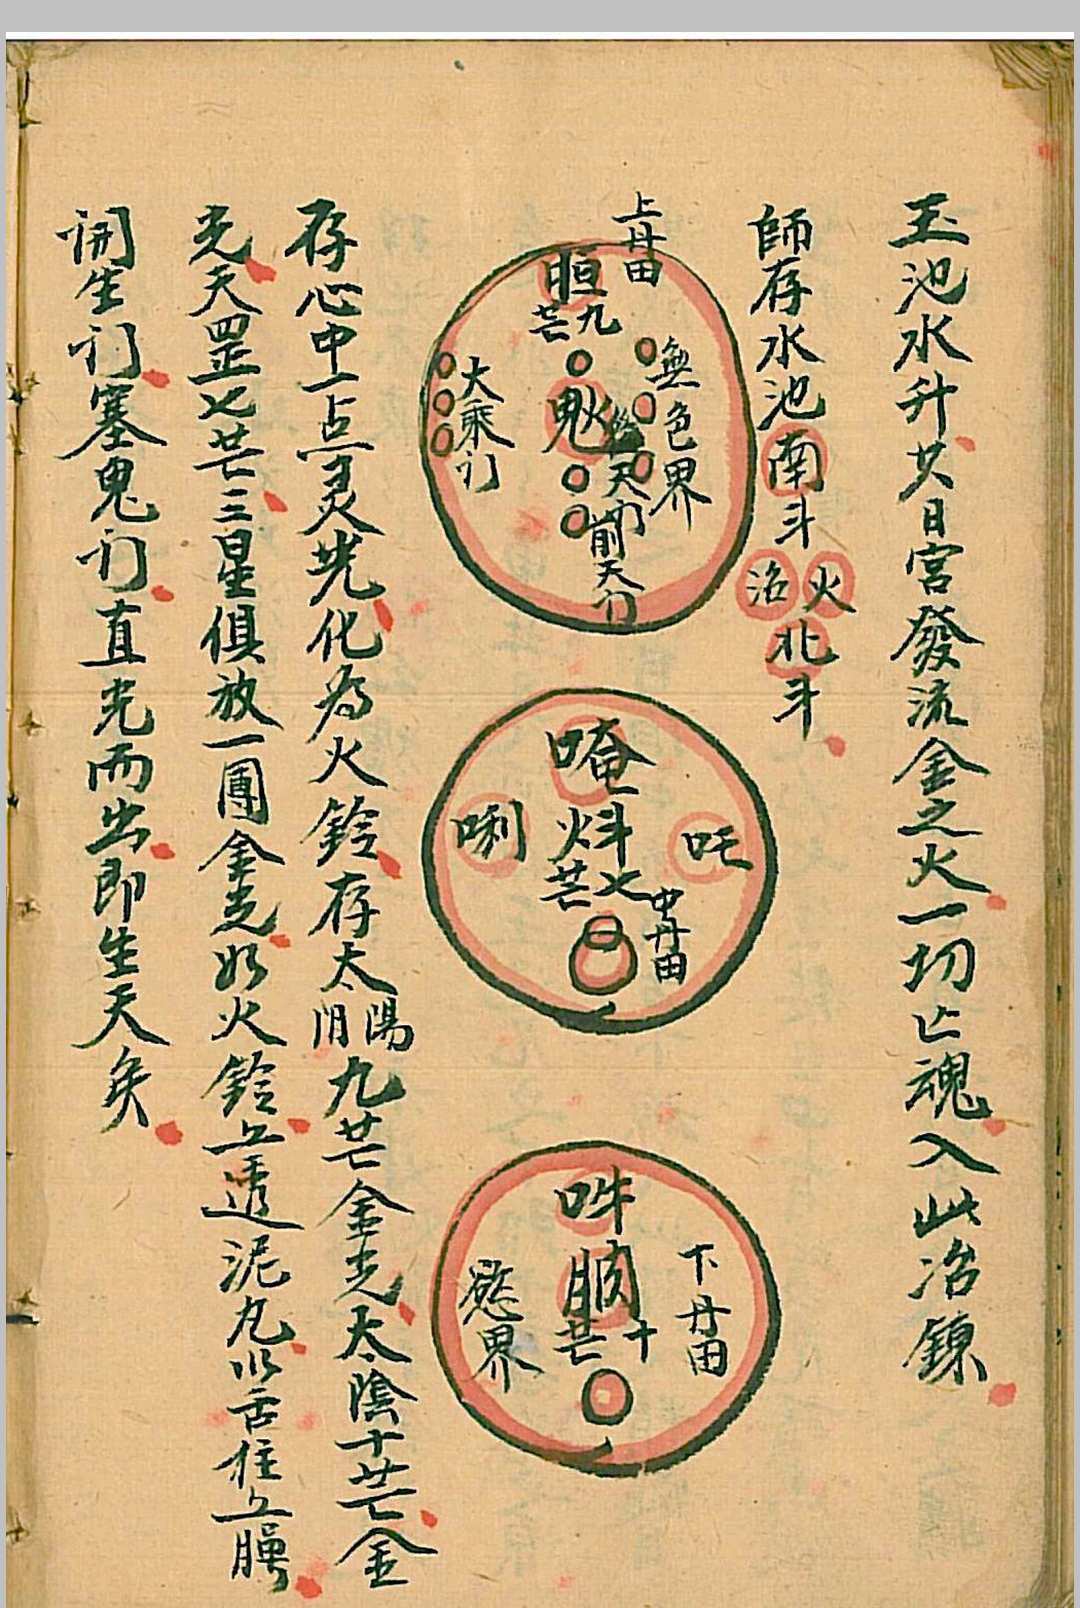 玉池水升入日宮發流金之火一切亡魂入此冶鍊
師存水池南斗
火沼北斗
上丹田
胆
九芒
無色界
大乘门
前天门
唵
吒
唎
斗
七芒
中丹田
吽
十芒
下丹田
慾界
存心中一点灵光化為火鈴存太陽太阴九芒金光太陰十芒金
光天罡七芒三星俱放一團金光如火鈴上透泥丸以舌柱上腭
開生门塞鬼门直光而出即生天矣